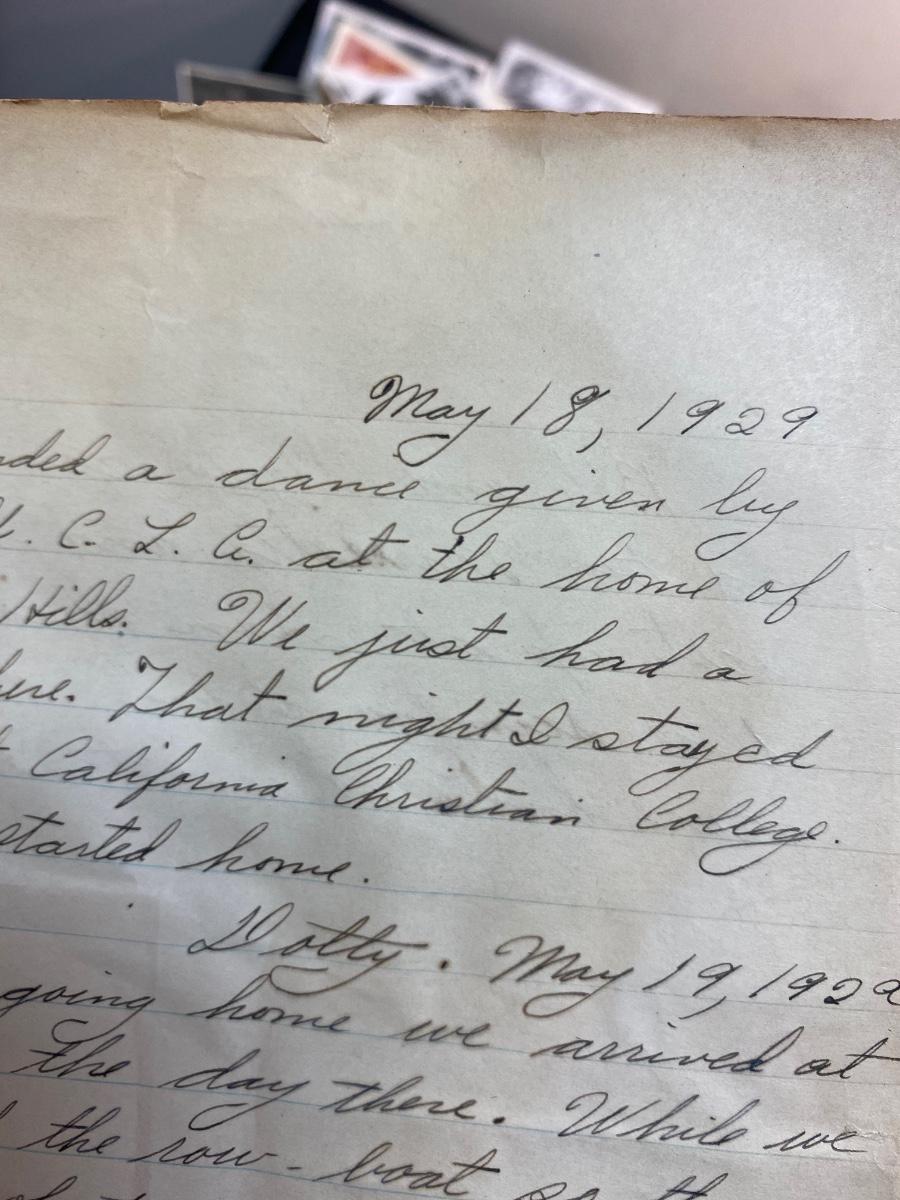 May 18, 1929
nded a dance given by
U. C. L. A. at the home of
Hills. We just had a
here. That night I stayed
t California Christian College.
started home.
Dotty. May 19, 1929
going home we arrived at
The day there. While we
the row-boat